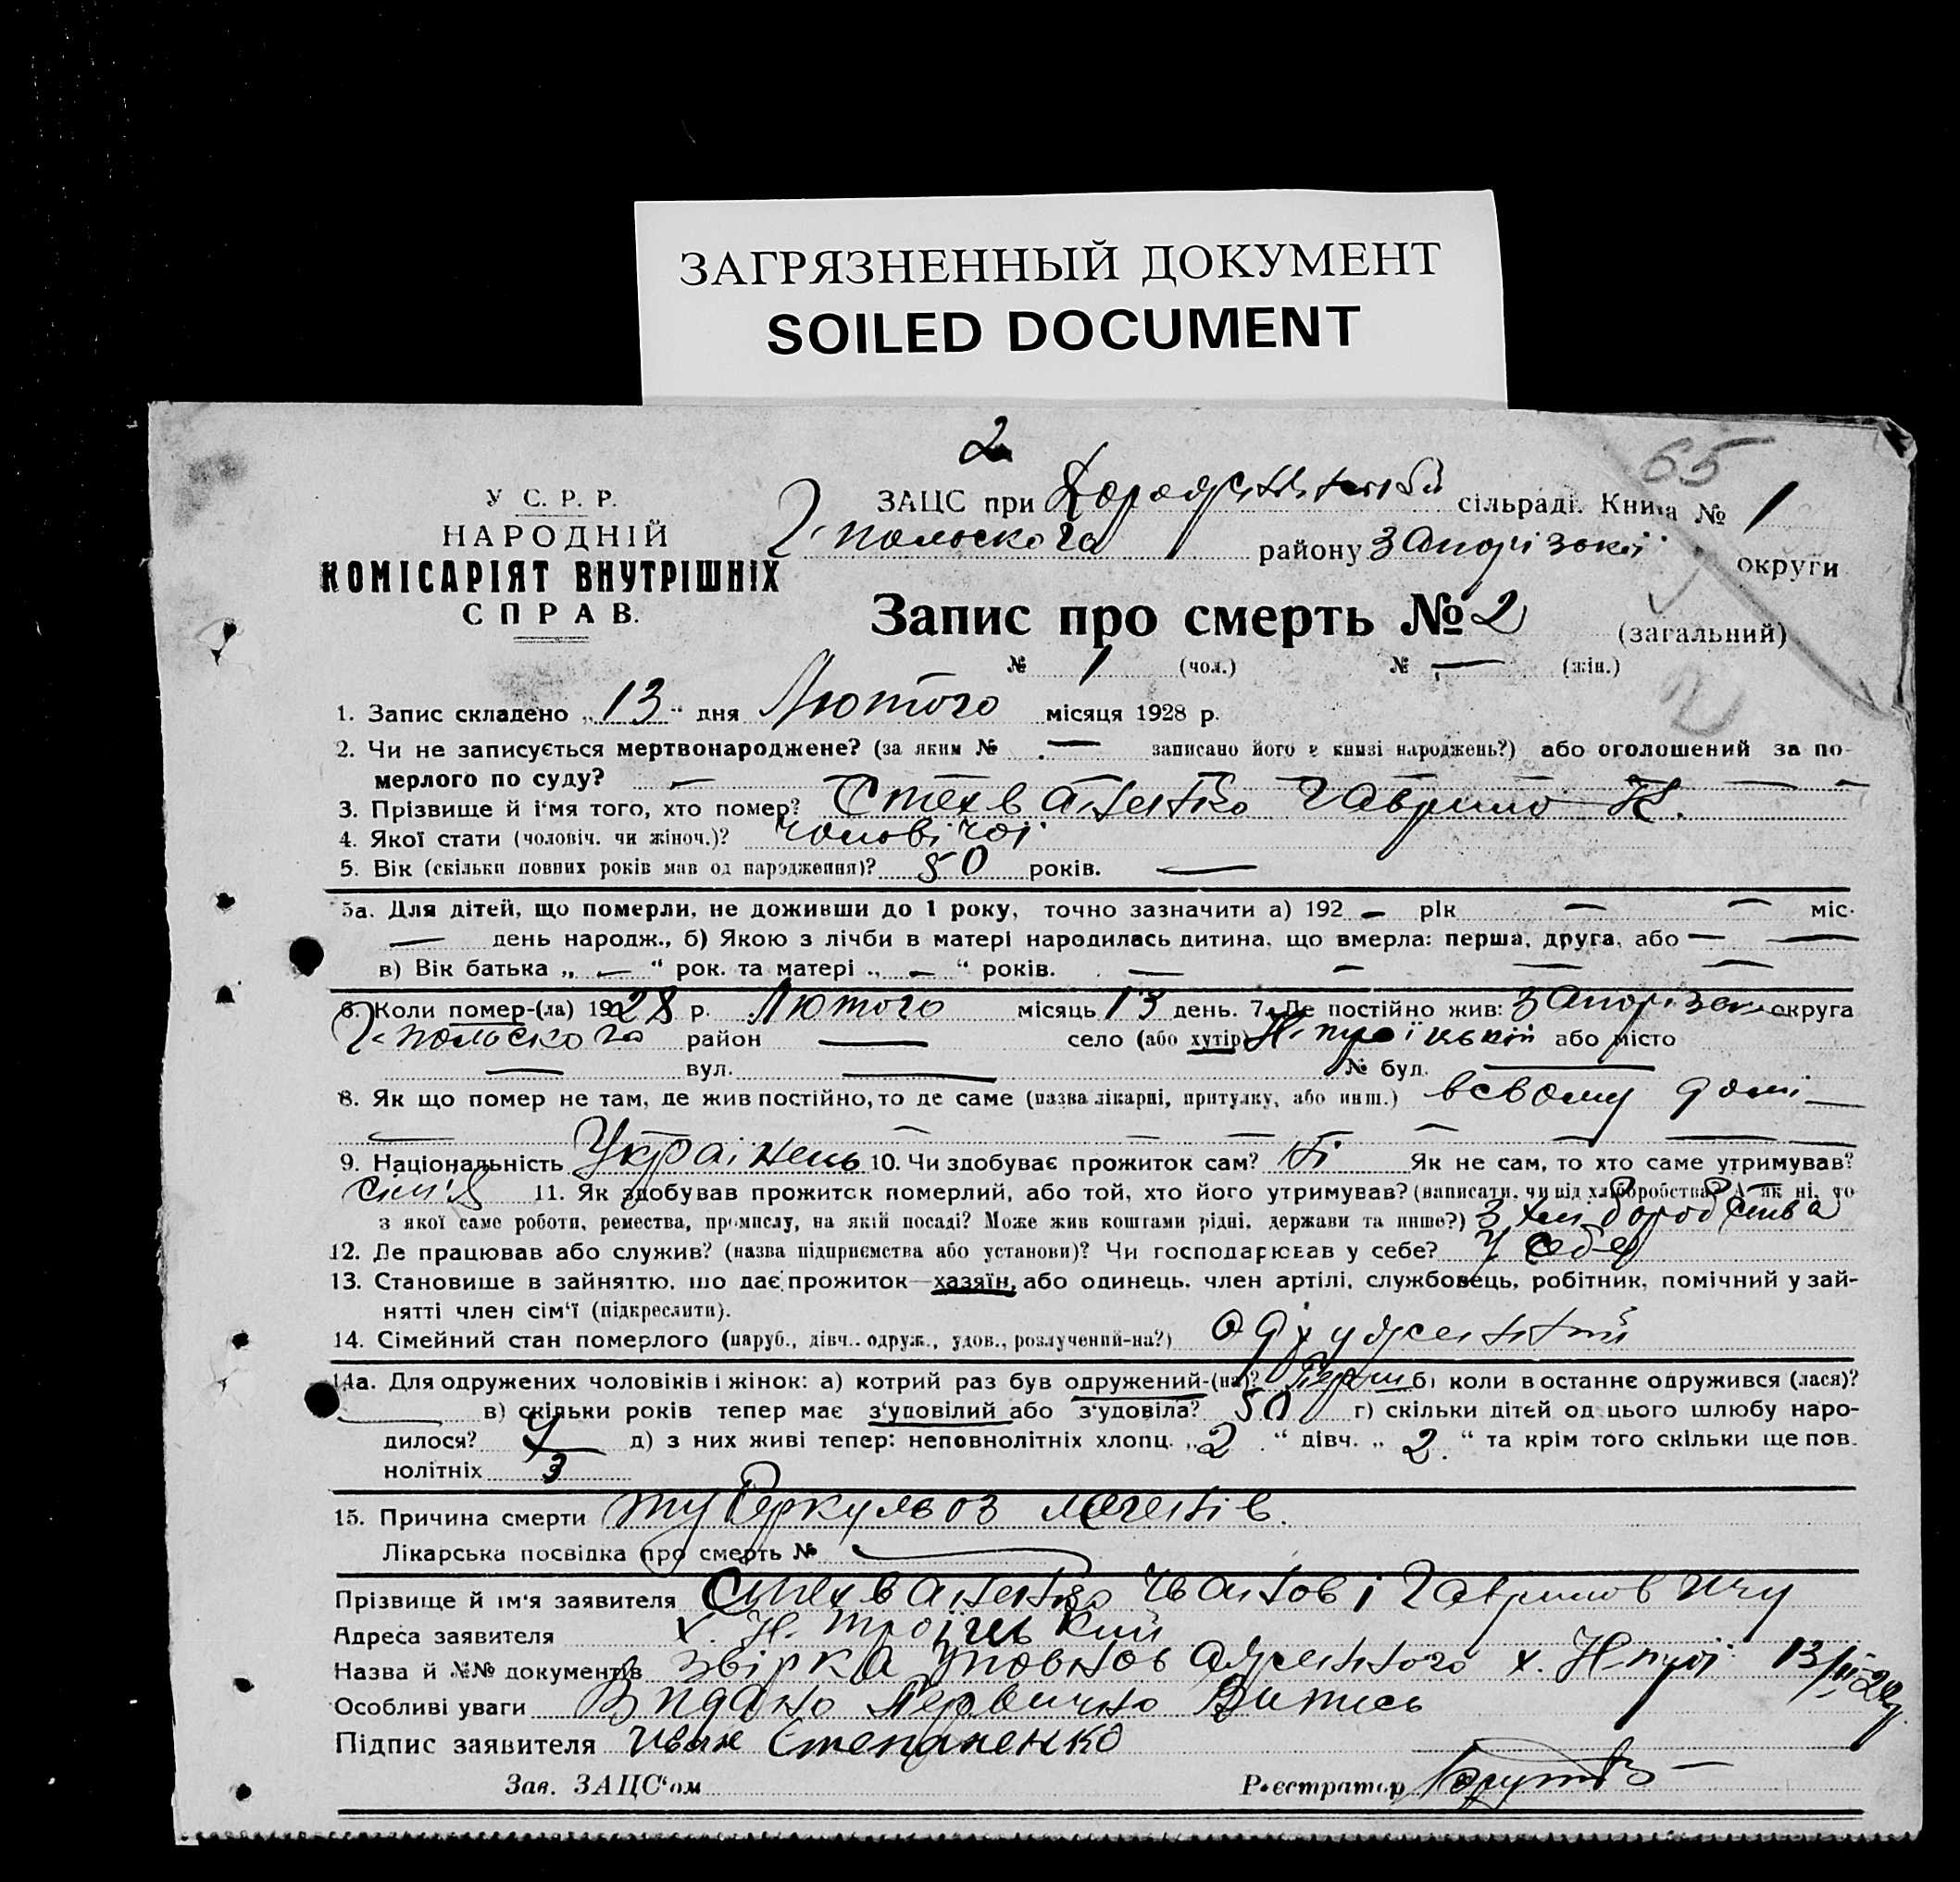 ЗАГРЯЗНЕННЫЙ ДОКУМЕНТ
SOILED DOCUMENT
2
65
У С. Р. Р.
НАРОДНІЙ
КОМІСАРІЯТ ВНУТРІШНІХ
СПРАВ.
ЗАЦС при сільраді. Книга № 1
Г-польского району Запорізької округи
Запис про смерть № 2 (загальний)
№ 1 (чол.) № — (жін.)
1. Запис складено „ 13 “ дня Лютого місяця 1928 р.
2. Чи не записується мертвонароджене? (за яким № — записано його в книзі народжень?) або оголошений за по-
мерлого по суду? —
3. Прізвище й і'мя того, хто помер? Степаненко Гаврило Н.
4. Якої стати (чоловіч. чи жіноч.)? чоловічої
5. Вік (скільки повних років мав од народження)? 50 років. —
5а. Для дітей, що померли, не доживши до 1 року, точно зазначити а) 192 — рік — — міс.
— день народж., б) Якою з лічби в матері народилась дитина, що вмерла: перша, друга, або — —
в) Вік батька „ — “ рок. та матері „ — “ років. — — — —
6. Коли помер-(ла) 1928 р. Лютого місяць 13 день. 7. Де постійно жив: Запорізьк округа
Г-польского район — село (або хутір) Н-троїцький або місто
— вул. — № буд. —
8. Як що помер не там, де жив постійно, то де саме (назва лікарні, притулку, або инш.) всвому домі —
9. Національність Українець 10. Чи здобуває прожиток сам? Ні Як не сам, то хто саме утримував?
сім'я 11. Як здобував прожиток померлий, або той, хто його утримував? (написати, чи від хліборобства? А як ні, то
з якої саме роботи, ремества, промислу, на якій посаді? Може жив коштами рідні, держави та инше?) З хліборобства
12. Де працював або служив? (назва підприємства або установи)? Чи господарював у себе? У себе
13. Становище в зайнятю, що дає прожиток—хазяїн, або одинець, член артілі, службовець, робітник, помічний у зай-
нятті член сім'ї (підкреслити).
14. Сімейний стан померлого (паруб., дівч., одруж., удов., розлучений-на?) одружений
14а. Для одружених чоловіків і жінок: а) котрий раз був одружений-(на)? Перш б) коли востаннє одружився (лася)?
— в) скільки років тепер має з'удовілий або з'удовіла? 50 г) скільки дітей од цього шлюбу наро-
дилося? д) з них живі тепер: неповнолітніх хлопц. „ 2 “ дівч. „ 2 “ та крім того скільки ще пов-
нолітніх 3
15. Причина смерти туберкульоз легенів.
Лікарська посвідка про смерть № —
Прізвище й ім'я заявителя Степаненко Іванові Гавриловичу
Адреса заявителя х. Н-Троїцький
Назва й №№ документів звірка уповноваженого х. Н-трої 13/II-28р.
Особливі уваги Видано первично Витись
Підпис заявителя Иван Степаненко
Зав. ЗАЦС'ом
Реєстратор